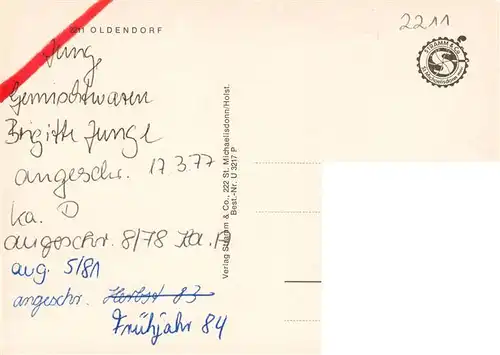 2211 OLDENDORF
Jung
Gemischtwaren
Brigitte Junge
angeschr. 17.3.77
ka. D
angeschr. 8/78 Ka. D
aug. 5/81
angeschr. Herbst 83
Frühjahr 84
Verlag Stramm & Co., 222 St. Michaelisdonn/Holst.
Best.-Nr. U 3217 P
2211
STRAMM & Co.
St. Michaelisdonn